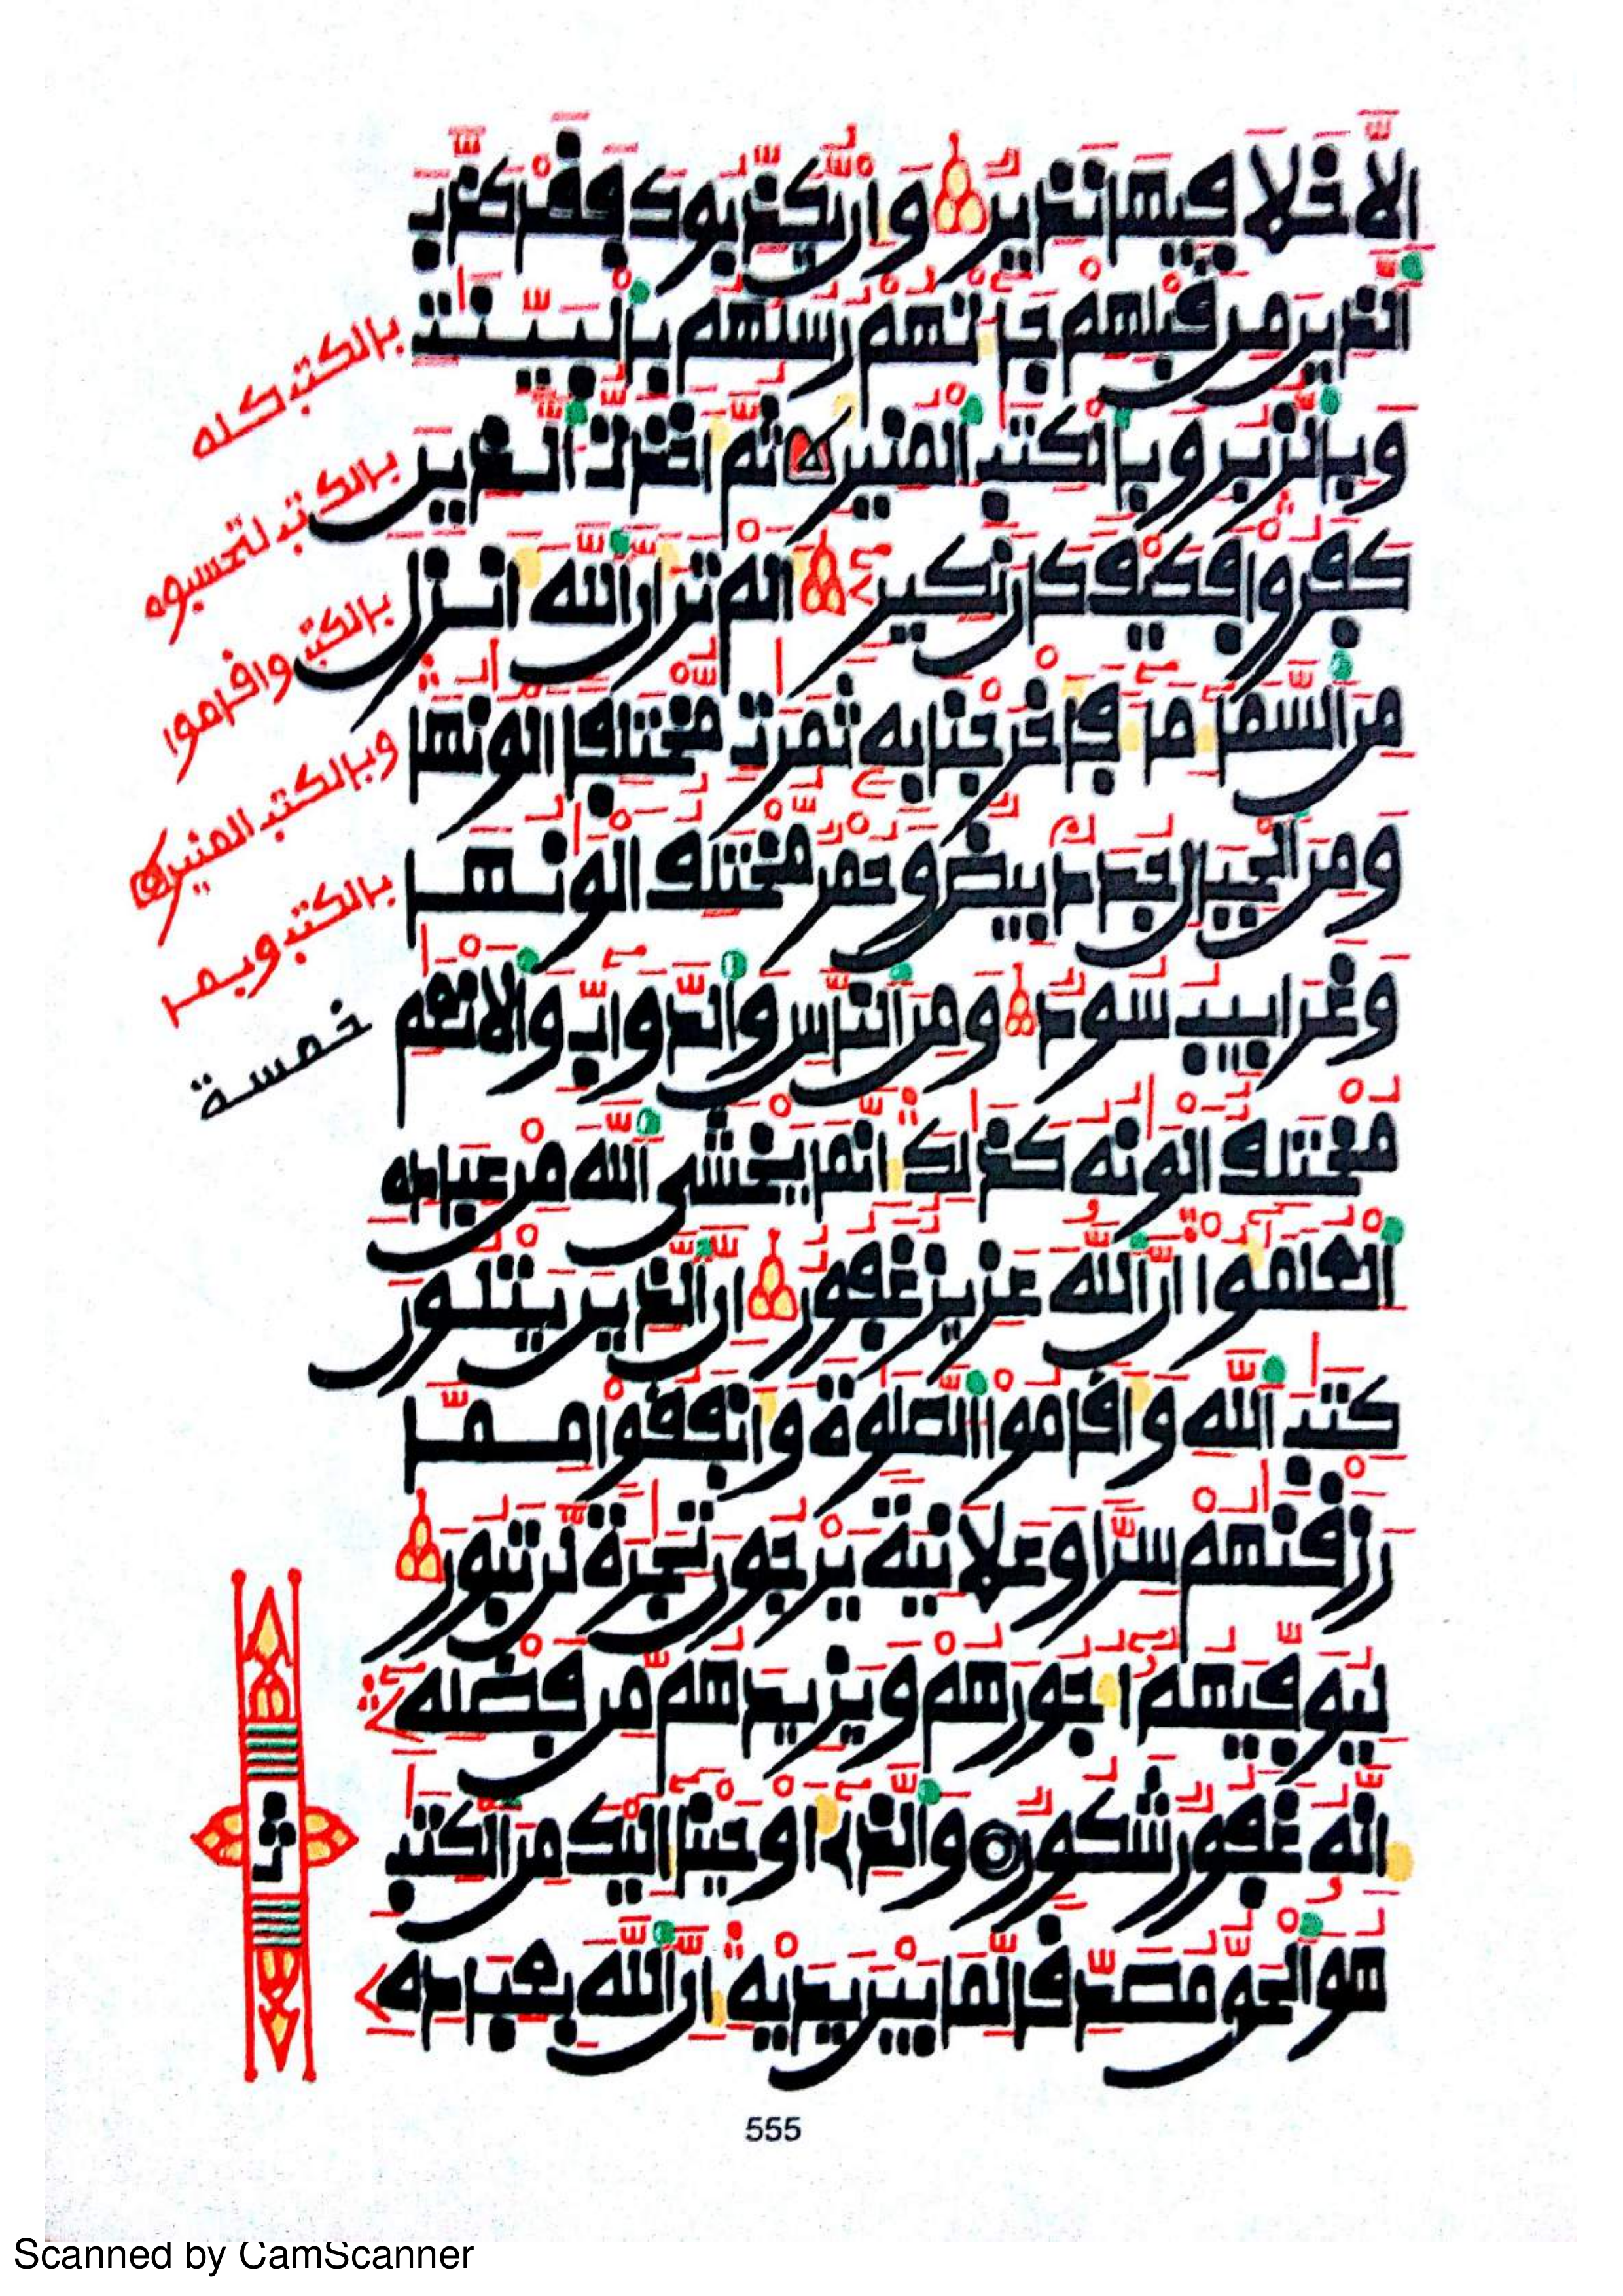 الا خلا فيها نذير وان يكذبوك فقد كذب
الذين من قبلهم جاتهم رسلهم بالبينت
وبالزبر وبالكتب المنير ثم اخذت الذين
كفروا فكيف كان نكير الم تر ان الله انزل
من السما ما فاخرجنا به ثمرت مختلفا الونها
ومن الجبال جدد بيض وحمر مختلف الونها
وغرابيب سود ومن الناس والدواب والانعم
مختلف الونه كذلك انما يخشى الله من عباده
العلموا ان الله عزيز غفور ان الذين يتلون
كتب الله واقاموا الصلوة وانفقوا مما
رزقنهم سرا وعلانية يرجون تجرة لن تبور
ليوفيهم اجورهم ويزيدهم من فضله
انه غفور شكور والذي اوحينا اليك من الكتب
هو الحق مصدقا لما بين يديه ان الله بعباده
بالكتب كله
بالكتب لتحسبوه
بالكتب واقاموا
وبالكتب المنير
بالكتب وبما
خمسة
ثمن
555
Scanned by CamScanner